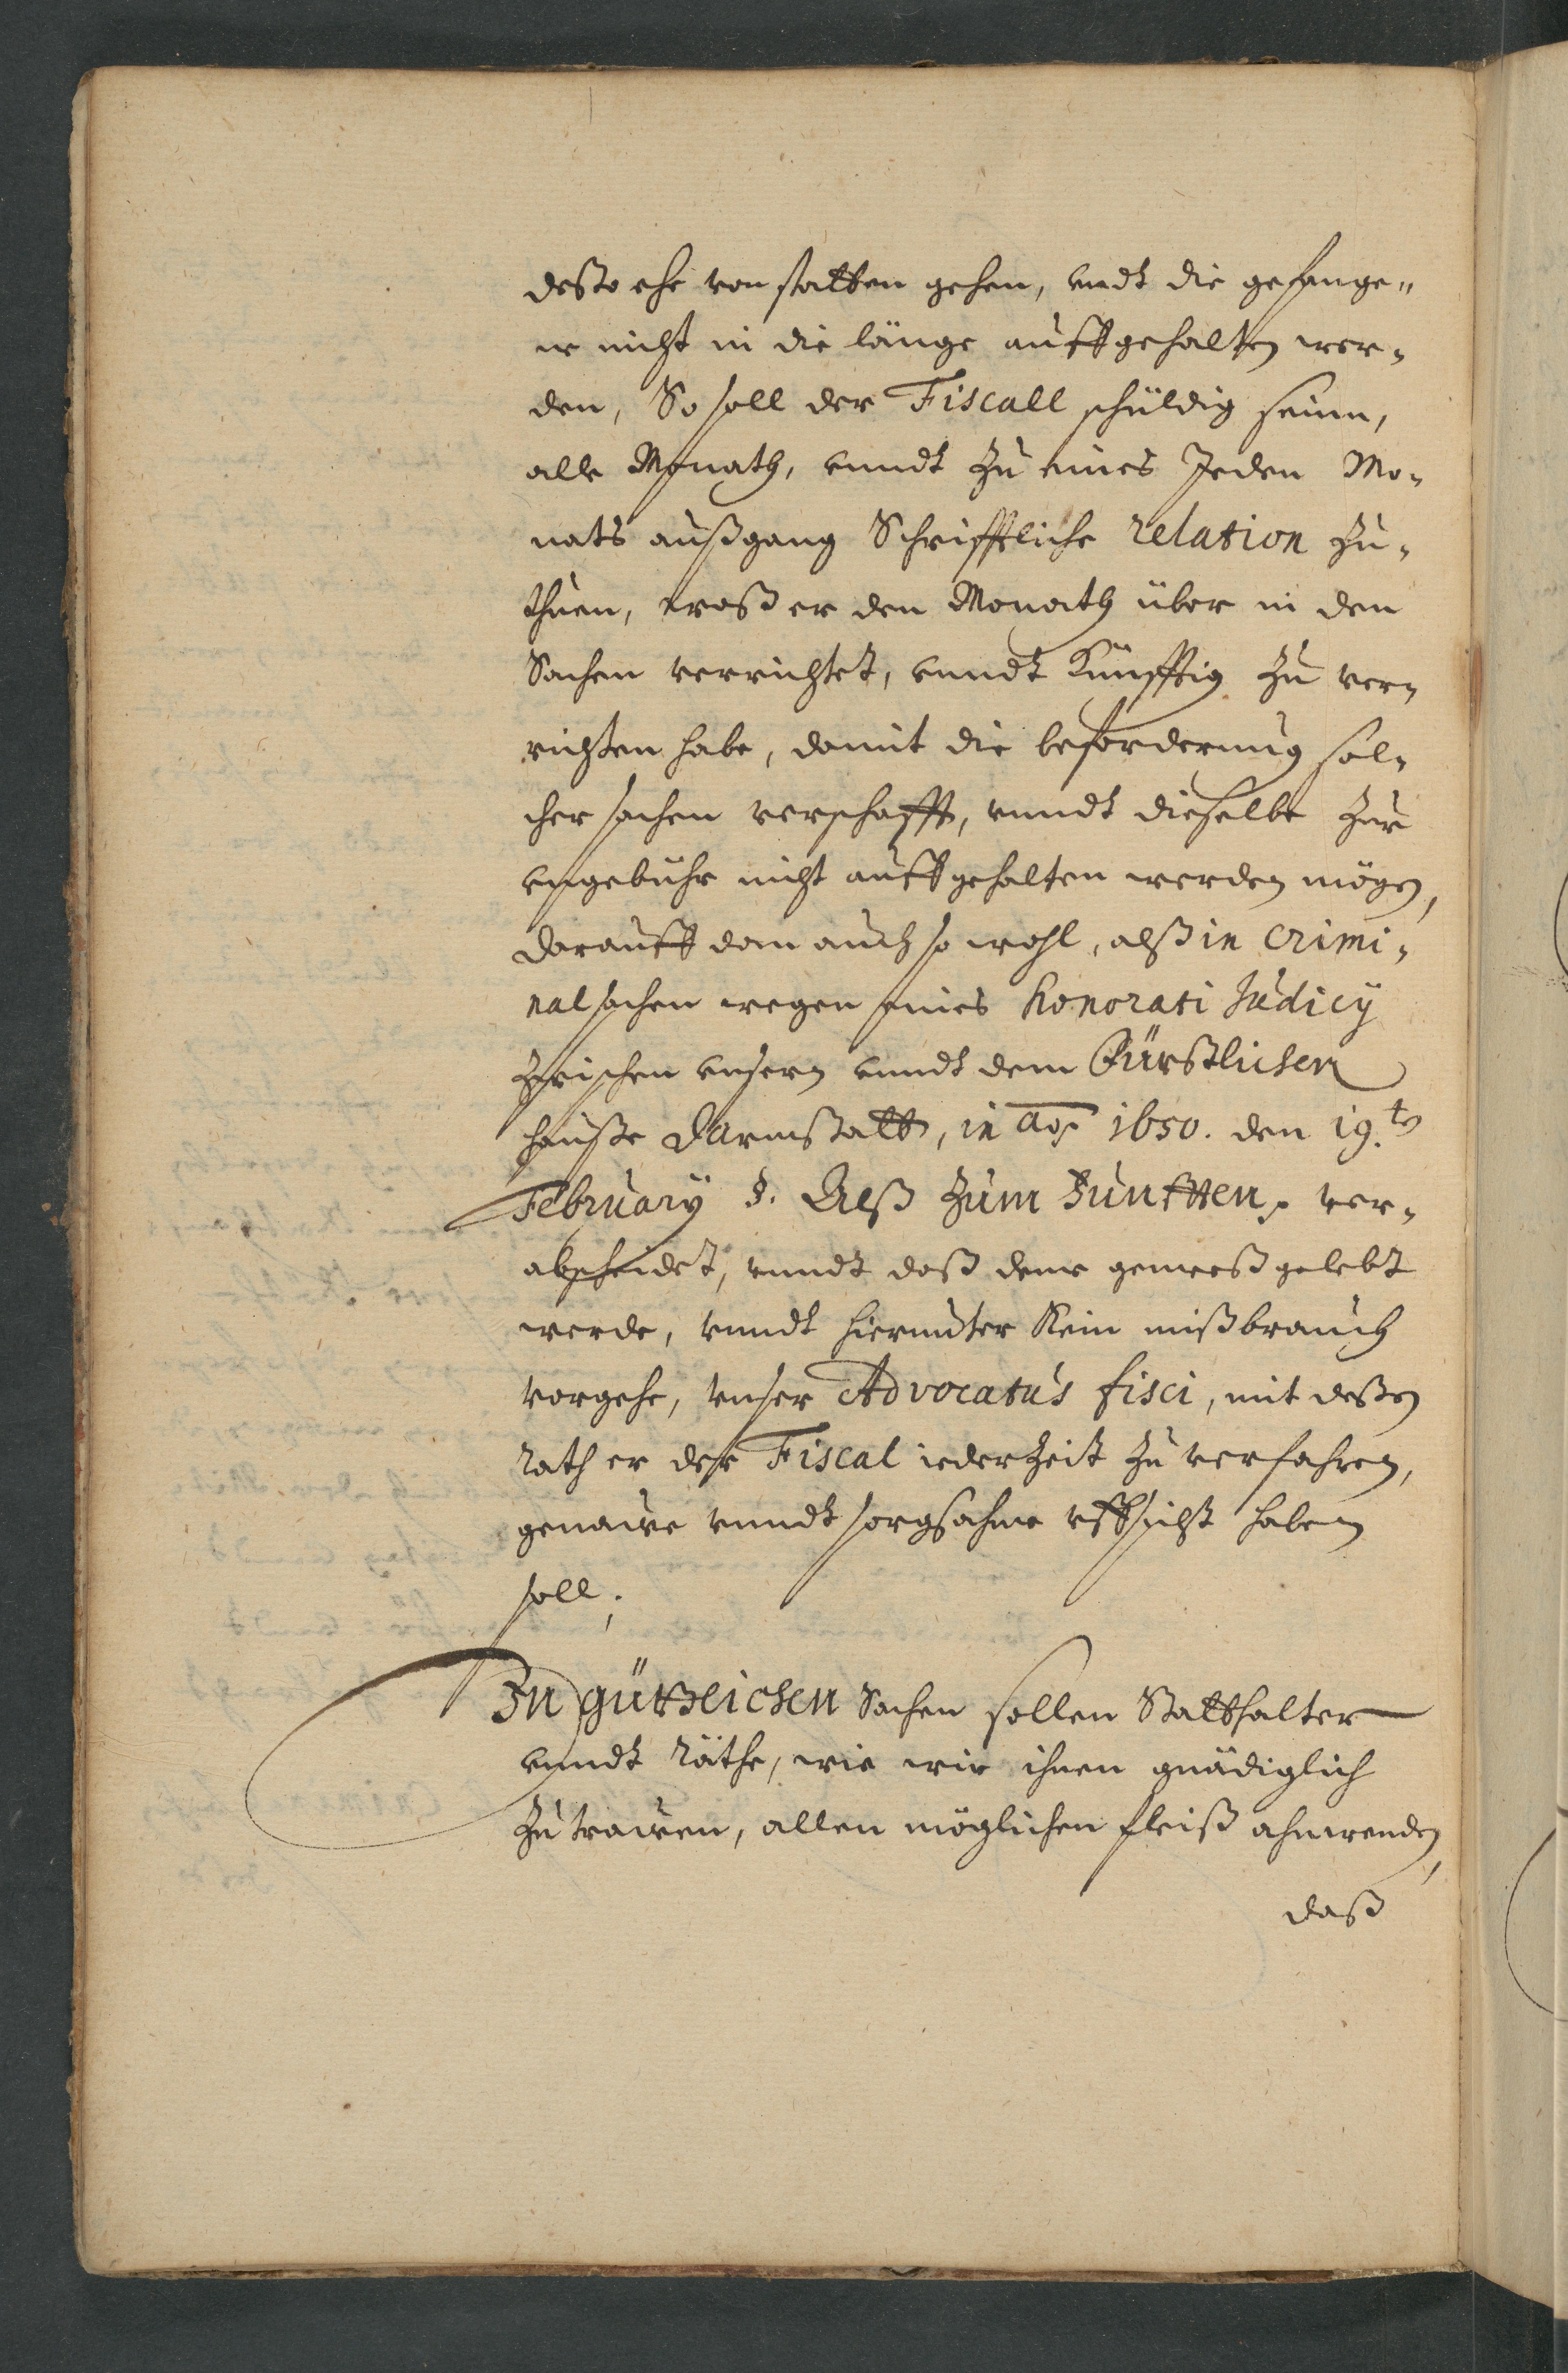 desto ehe von statten gehen, undt die gefange„
ne nicht in die länge auffgehalten wer„
den, So soll der Fiscall schüldig seinn,
alle Monath, unndt zu eines Jeden Mo„
nats außgang Schrifftliche relation zu„
thuen, waß er den Monath über in den
Sachen verrichtet, unndt Künfftig zu ver„
richten habe, damit die beforderung sol„
cher sachen verschafft, unndt dieselbe zur
ungebühr nicht auffgehalten werden mögen,
darauff dan auch so wohl, alß in Crimi„
nal sachen wegen eines honorati Judicÿ
zwischen unsern unndt dem Fürstlichen
hauße Darmstatt, in ao 1650. den 19.t
Februarÿ §. Alß zum Fünfften ver„
abscheidet, unndt daß deme gemeeß gelebt
werde, unndt hierunter Kein mißbrauch
vorgehe, unser Advocatus fisci, mit deßen
rath er der Fiscal iederzeit zu verfahren,
genauwe unndt sorgsahme uffsicht haben
soll.
In gütlichen Sachen sollen Statthalter
unndt räthe, wie wir ihnen gnädiglich
zutrauwen, allen möglichen fleiß ahnwenden,
daß